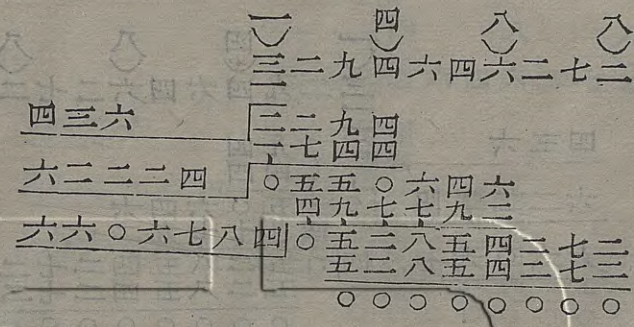 一 四 八 八
三二九四六四六二七二
一
四三六 二二九四
一七四四
六二二二四 〇五五〇六四六
四九七七九二
六六〇六七八四 〇五二八五四二七二
五二八五四二七二
〇〇〇〇〇〇〇〇